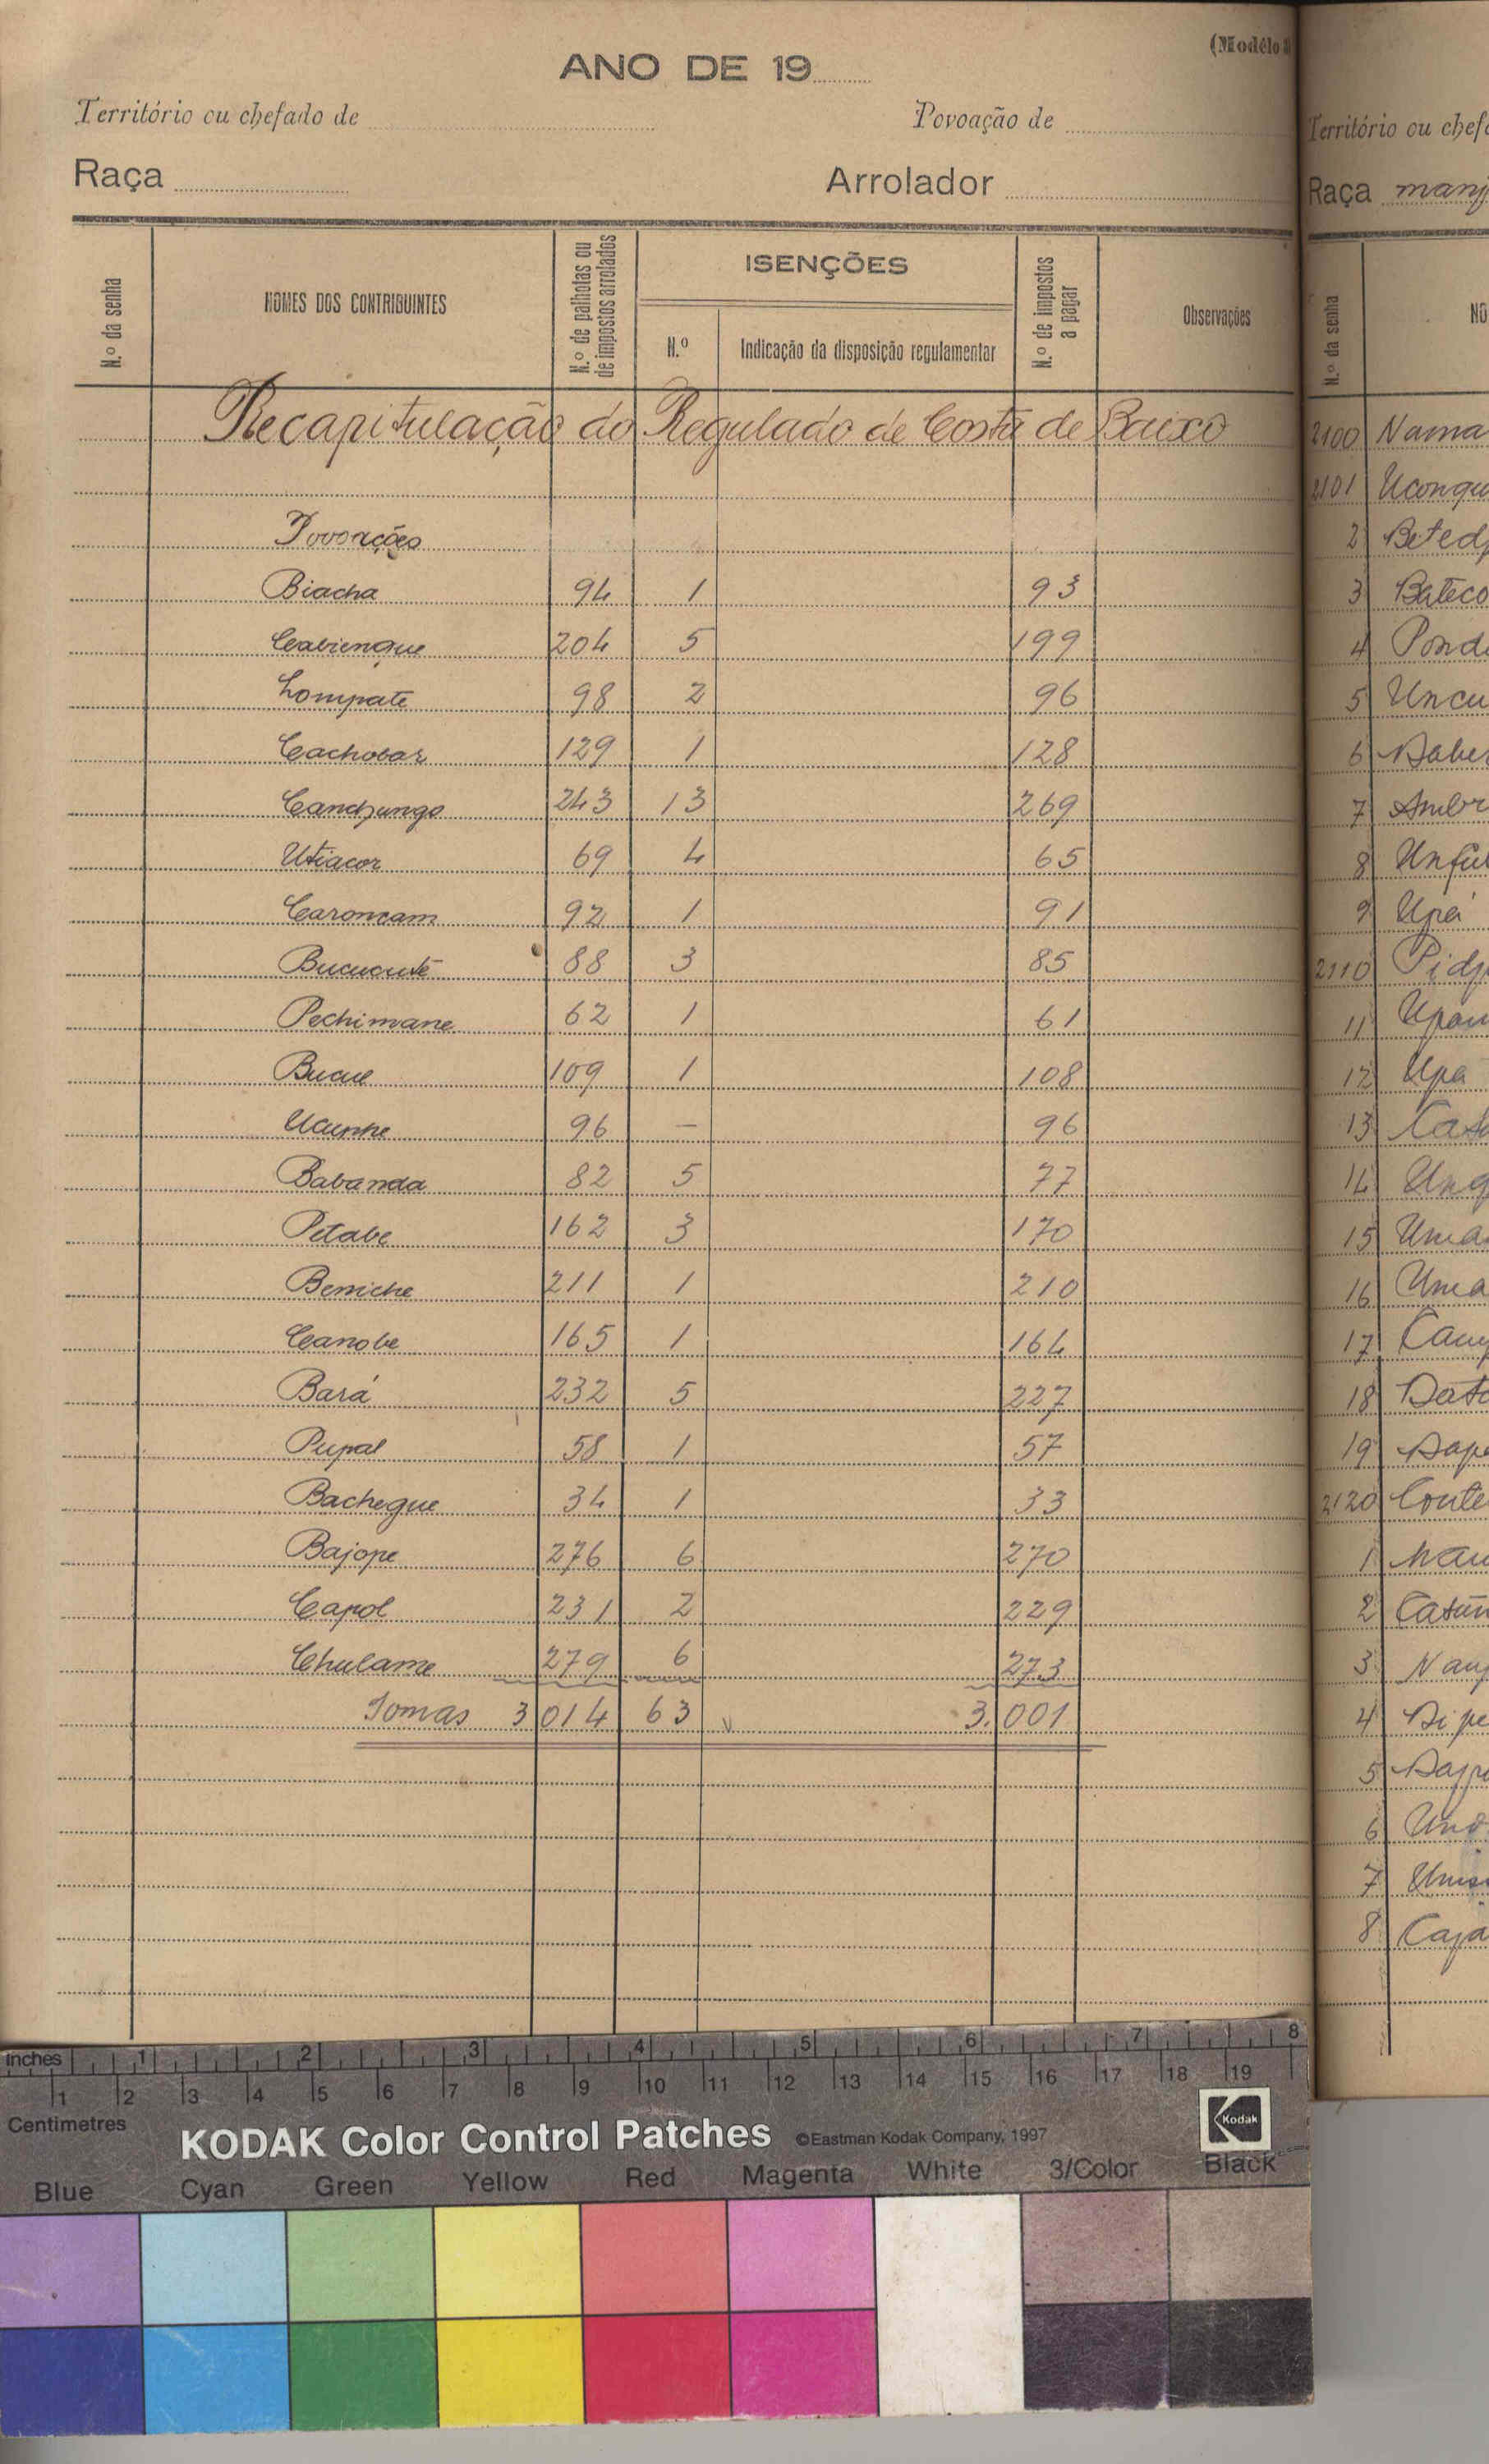 (Modêlo
ANO DE 19
Território ou chefado de Povoação de
Raça Arrolador
N.º da senha
NOMES DOS CONTRIBUINTES
N.º de palhotas ou de impostos arrolados
ISENÇÕES
N.º
Indicação da disposição regulamentar
N.º de impostos a pagar
Observações
Recapitulação do Regulado de Costa de Baixo
Povoações
Biacha 94 1 93
Cabienque 204 5 199
Lompate 98 2 96
Cachobar 129 1 128
Canchungo 243 13 269
Utiacor 69 4 65
Caroncam 92 1 91
Bucucuté 88 3 85
Pechimane 62 1 61
Bucul 109 1 108
Ucunhe 96 – 96
Babanda 82 5 77
Petabe 162 3 170
Beniche 211 1 210
Canobe 165 1 164
Bará 232 5 227
Pupal 58 1 57
Bachegue 34 1 33
Bajope 276 6 270
Capol 231 2 229
Chulame 279 6 273
Somas 3 014 63 3.001
Território ou chef
Raça manj
N.º da senha
NO
2100 Nama
2101 Uconqu
2 Beted
3 Bateco
4 Pond
5 Uncu
6 Babe
7 Ambr
8 Unfu
9 Upá
2110 Pidj
11 Upau
12 Upa
13 Cas
14 Ung
15 Uma
16 Uma
17 Cau
18 Dat
19 Dape
2120 Conte
1 Nau
2 Casun
3 Nau
4 Dipe
5
6 Und
7 Unis
8 Caja
inches 1 2 3 4 5 6 7 8
1 2 3 4 5 6 7 8 9 10 11 12 13 14 15 16 17 18 19
Centimetres
KODAK Color Control Patches ©Eastman Kodak Company, 1997 Kodak
Blue Cyan Green Yellow Red Magenta White 3/Color Black